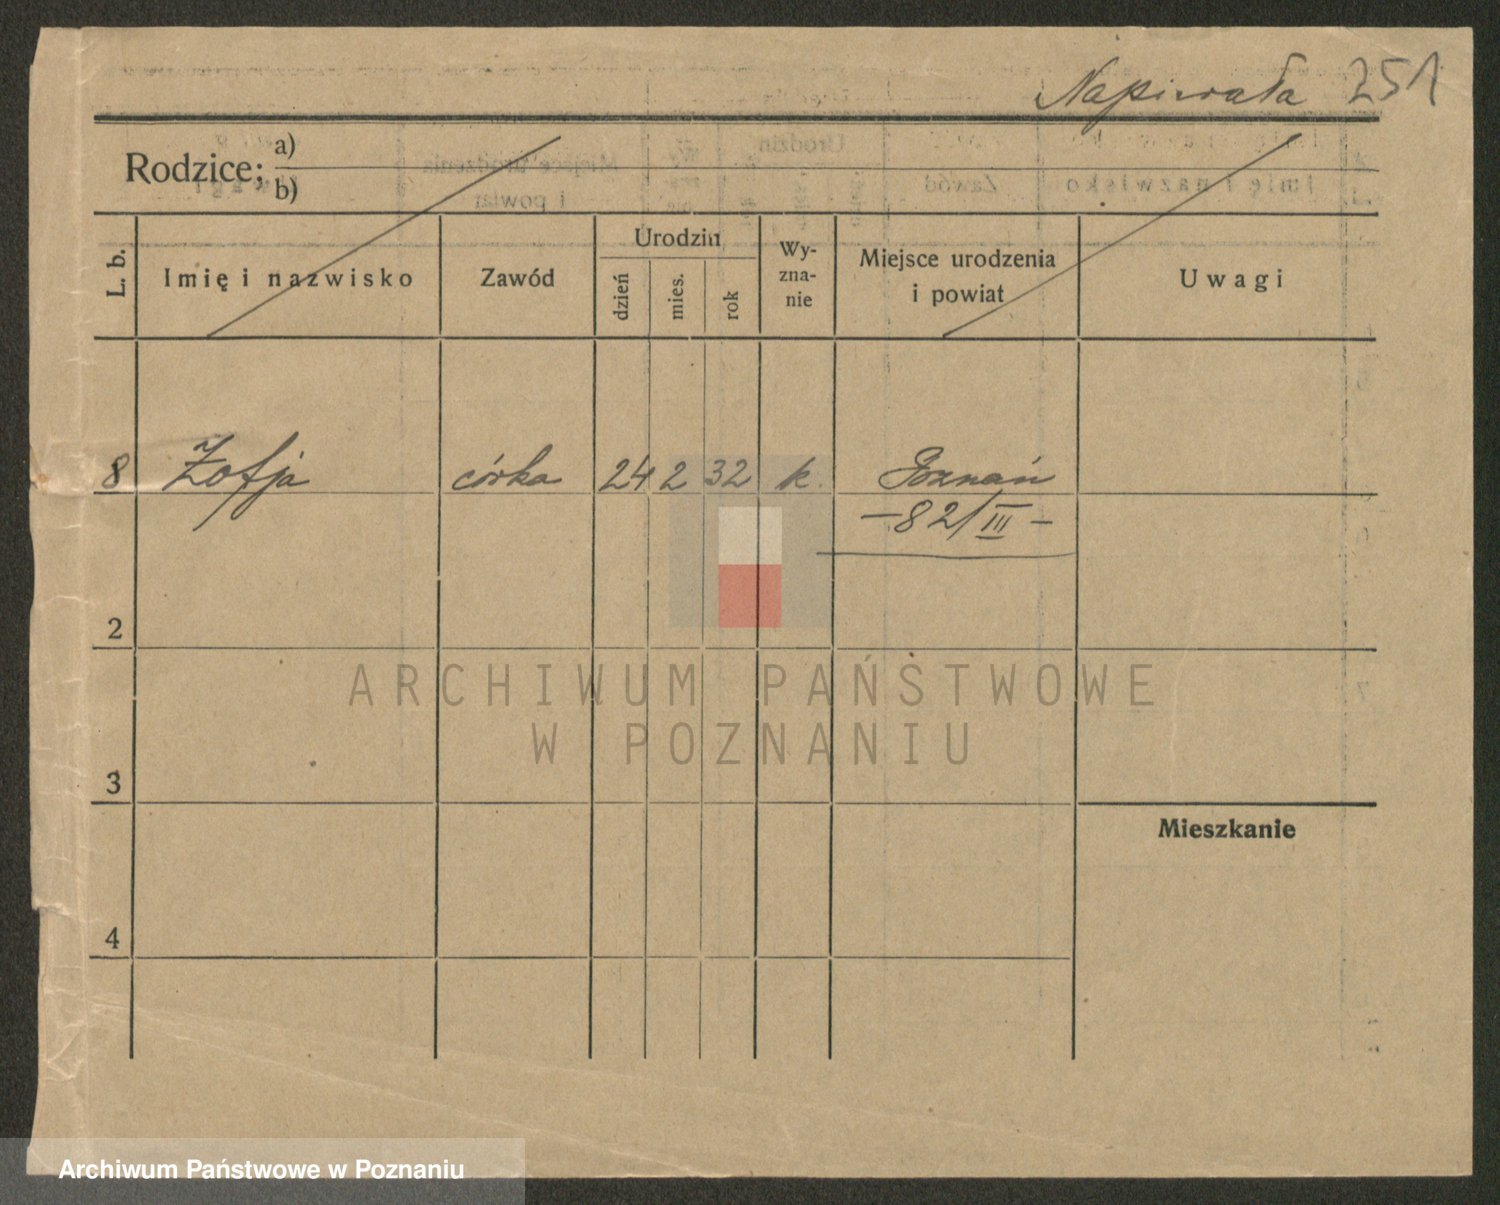 Napierała 251
Rodzice; a)
b)
L. b. Imię i nazwisko Zawód Urodzin dzień mies. rok Wy-zna-nie Miejsce urodzenia i powiat Uwagi
8 Zofja córka 24 2 32 k. Poznań
– 82/III –
2
3
Mieszkanie
4
ARCHIWUM PAŃSTWOWE
W POZNANIU
Archiwum Państwowe w Poznaniu